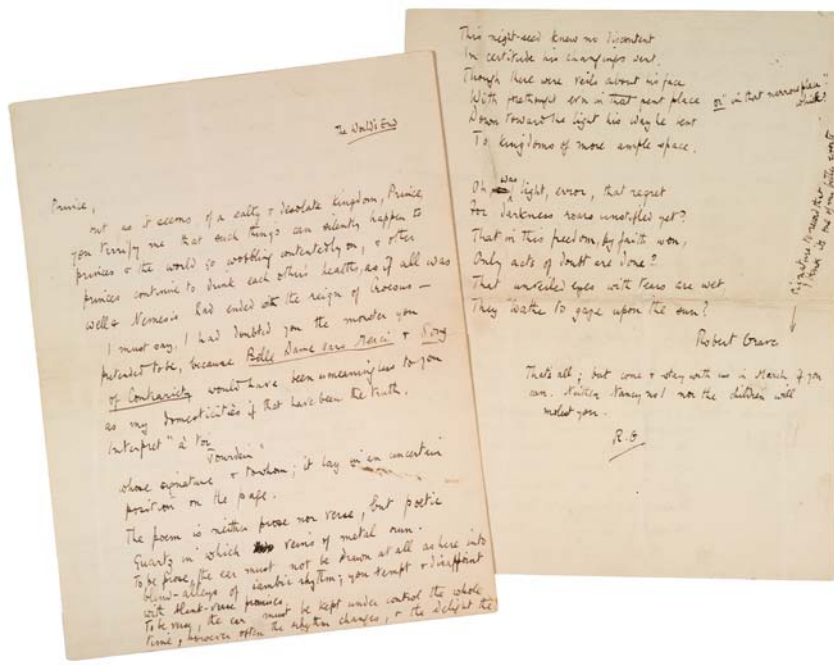 The World's End
Prince,
not as it seems of a salty & desolate kingdom, Prince,
you terrify me that such things can silently happen to
princes & the world go wobbling contentedly on, & other
princes continue to drink each other's healths, as if all was
well & Nemesis had ended the reign of Croesus —
I must say, I had doubted you the monster you
pretended to be, because Belle Dame sans Merci & Song
of Contrariety would have been unmeaning to you
as my domesticities if that have been the truth.
Interpret "à toi
Jourdain"
whose signature & to whom; it lay in an uncertain
position on the page.
The poem is neither prose nor verse, but poetic
Quartz in which veins of metal run.
To be prose, the ear must not be drawn at all as here into
blind-alleys of iambic rhythm; you tempt & disappoint
with blank-verse promises.
To be verse, the ear must be kept under control the whole
time, however often the rhythm changes, & the delight the
This night-seed knew no discontent
In certitude his changings went.
Though there were veils about his face
With forethought even in that pent place or "in that narrow place"
which?
Down toward the light his way he bent
To kingdoms of more ample space.
Oh was light, error, that regret
For darkness roars unstifled yet?
That in this freedom, by faith won,
Only acts of doubt are done?
That unveiled eyes with tears are wet
They loathe to gaze upon the sun?
Robert Graves
signature to record that
That's all; but come & stay with us in March if you
can. Neither Nancy nor I nor the children will
molest you.
R.G